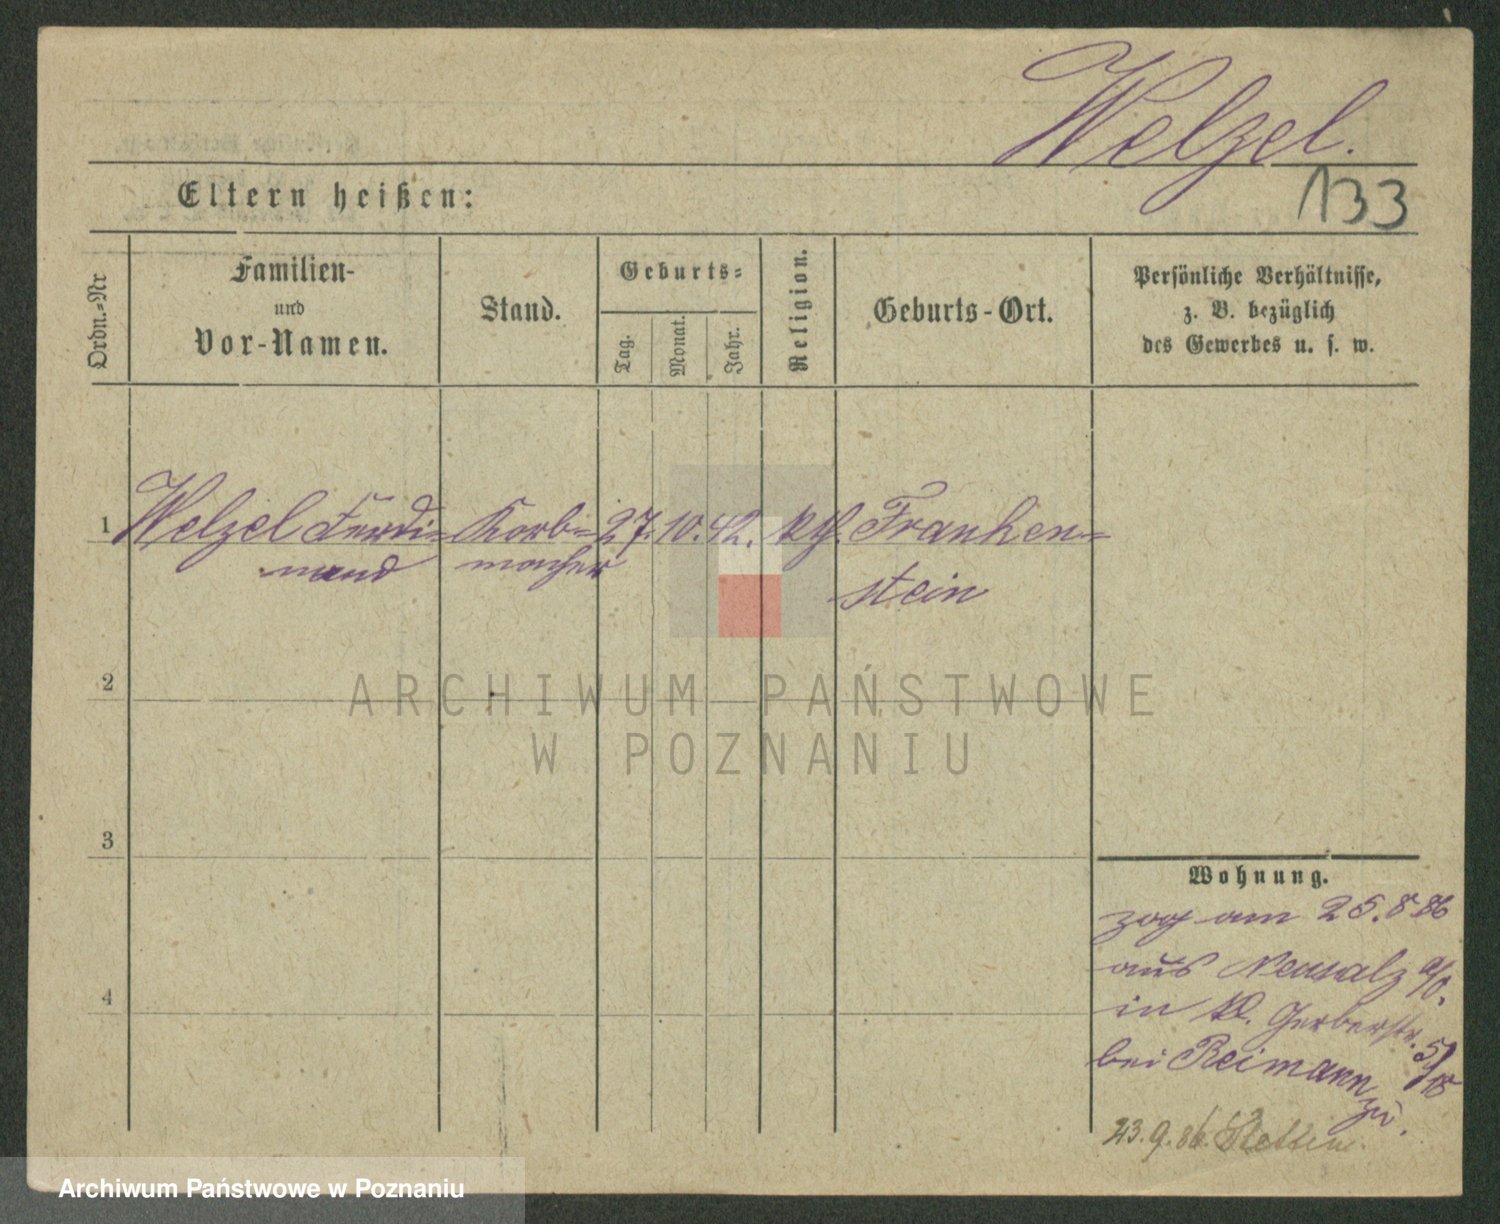 Welzel.
133
Eltern heißen:
Ordn.-Nr
Familien-
und
Vor-Namen.
Stand.
Geburts-
Tag.
Monat.
Jahr.
Religion.
Geburts-Ort.
Persönliche Verhältnisse,
z. B. bezüglich
des Gewerbes u. s. w.
1 Welzel Ferdi- Korb- 27. 10. 42. kth. Franken-
nand macher stein
2
3
4
Wohnung.
zog am 25. 8 86
aus Neusalz a/O.
in kl. Gerberstr. 5/
bei Reimann
zu.
23.9.86. Stettin.
ARCHIWUM PAŃSTWOWE
W POZNANIU
Archiwum Państwowe w Poznaniu